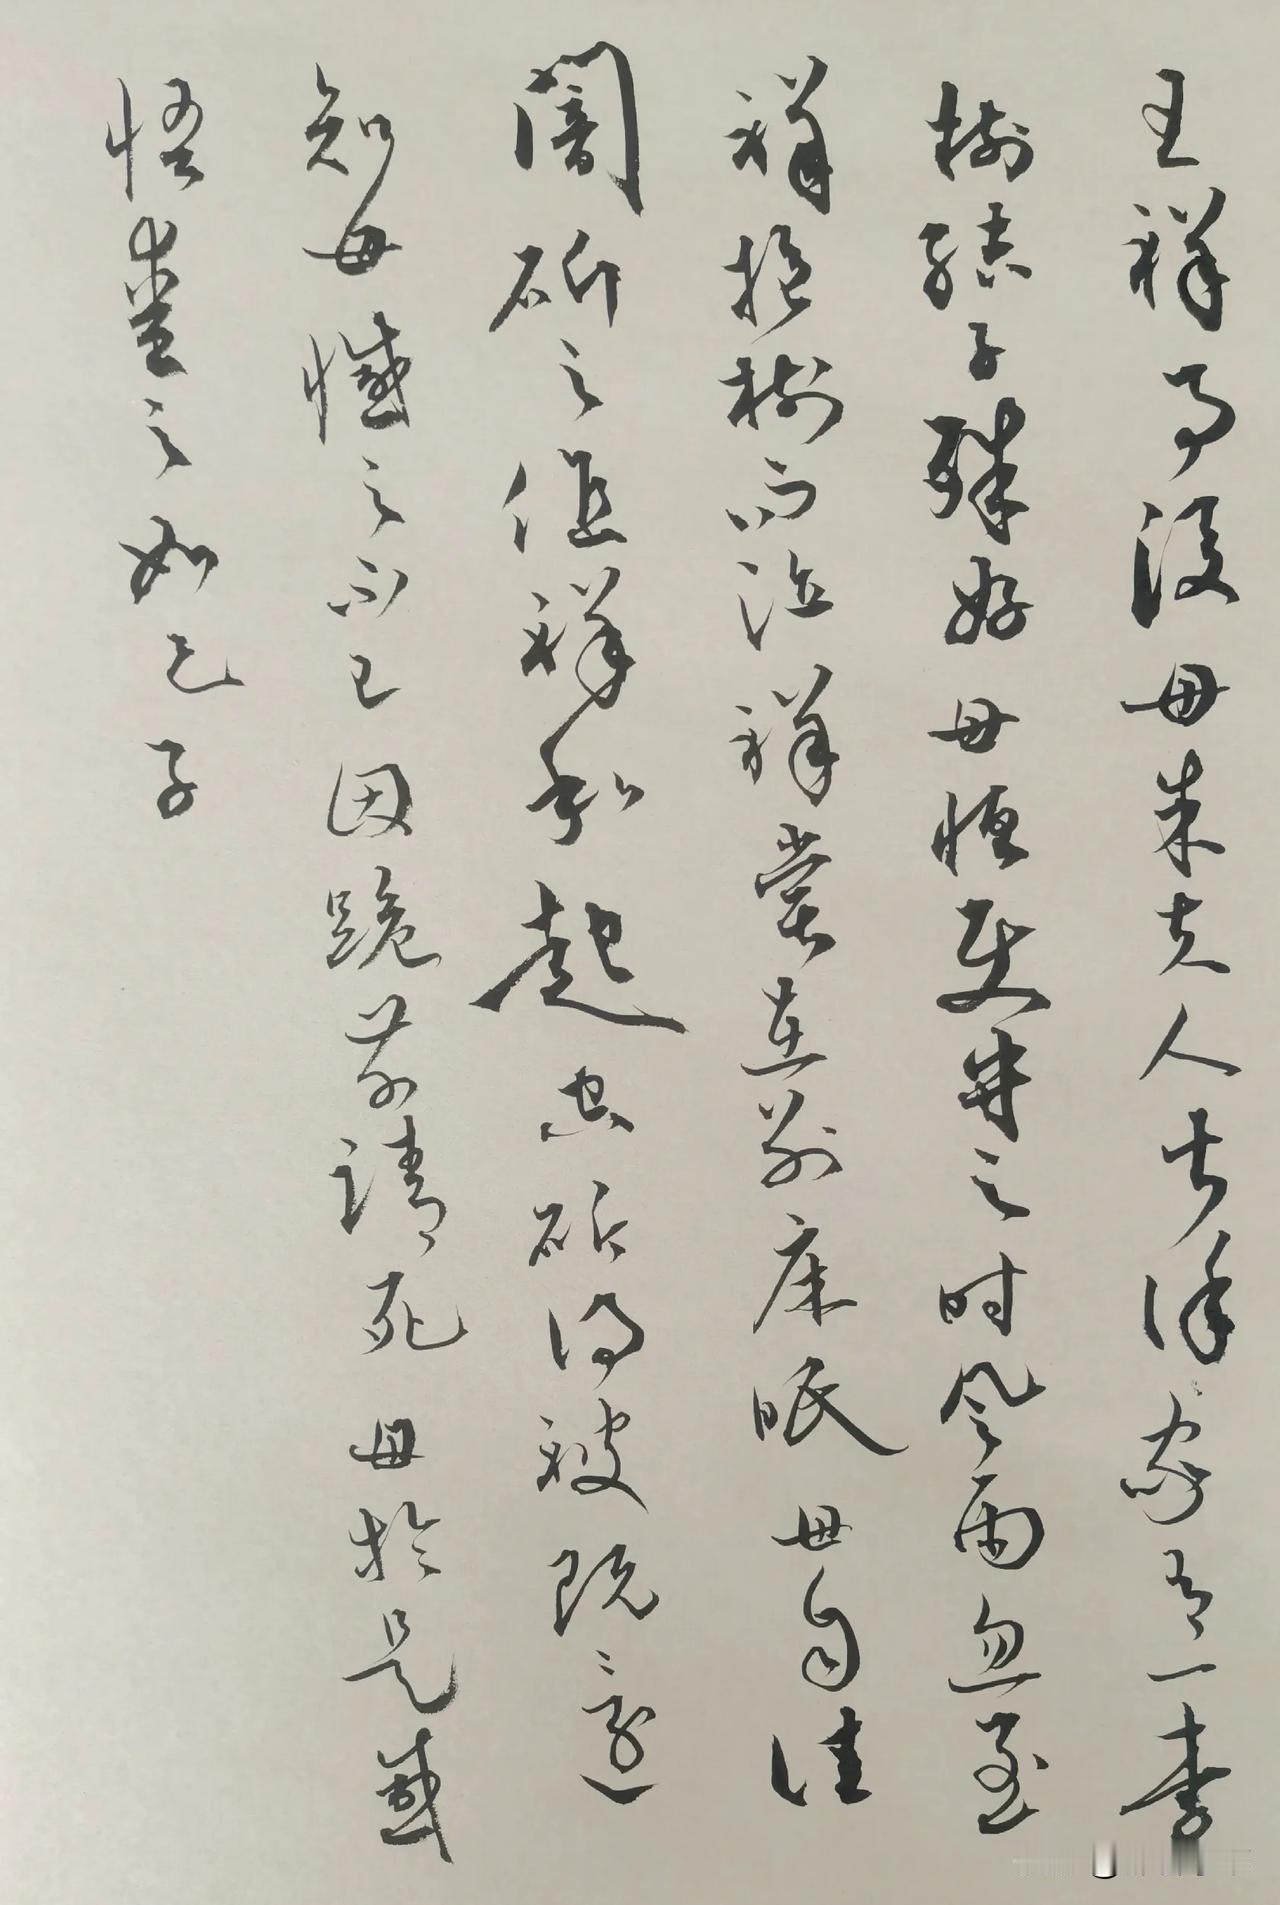 王祥事後母朱夫人甚謹家有一李
樹結子殊好母恒使守之時風雨忽至
祥抱樹而泣祥嘗在別床眠母自往
闇斫之值祥私起空斫得被既還
知母憾之不已因跪前請死母於是感
悟愛之如己子